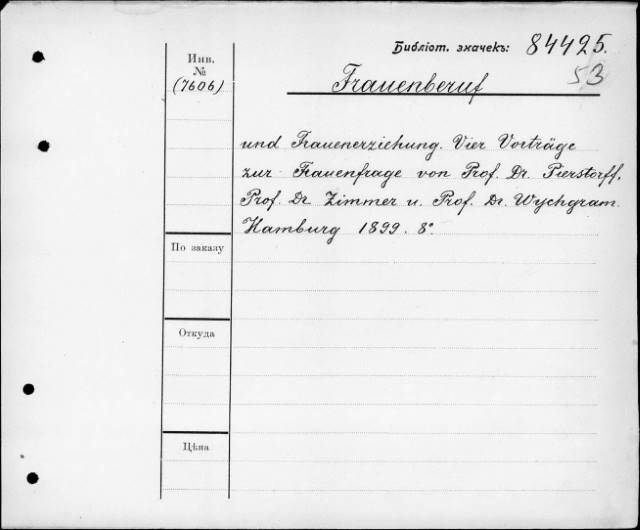 Библіот. значекъ: 84425.
53
Инв.
№
(7606)
Frauenberuf
und Frauenerziehung. Vier Vorträge
zur Frauenfrage von Prof. Dr. Pierstorff,
Prof. Dr. Zimmer u. Prof. Dr. Wychgram.
Hamburg 1899. 8°.
По заказу
Откуда
Цѣна